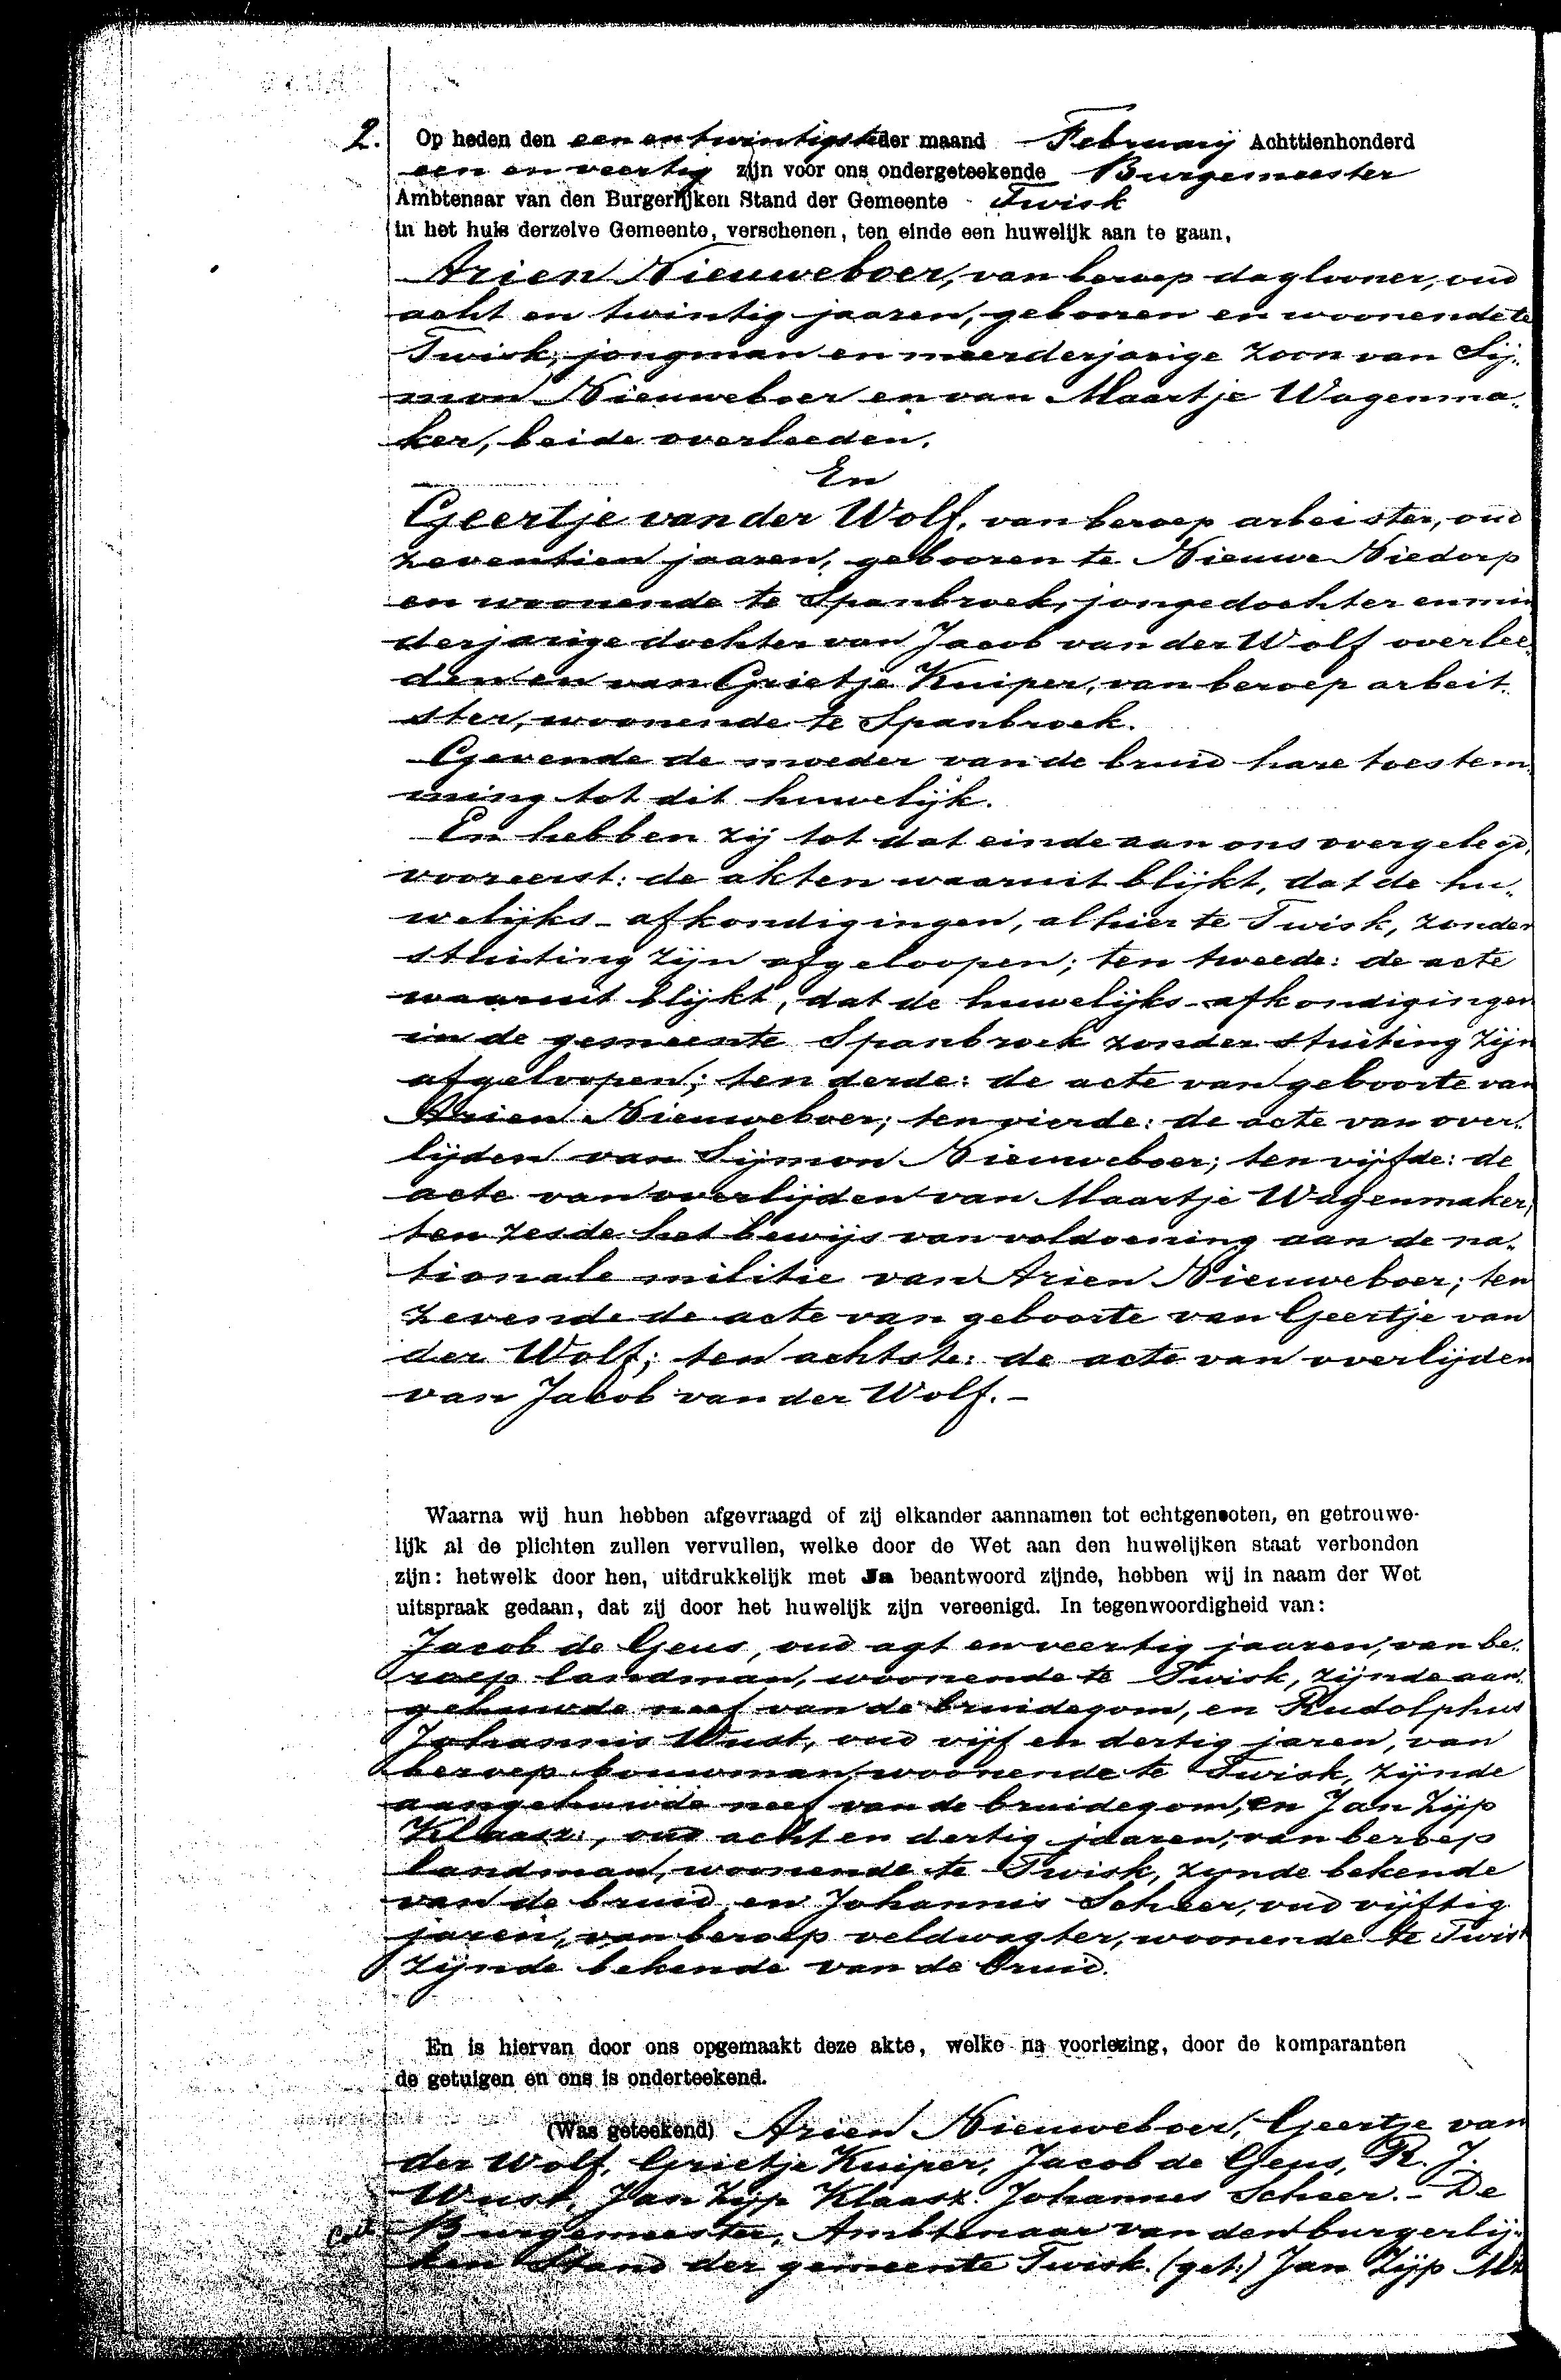 2. Op heden den een en twintigste der maand Februarij Achttienhonderd
een en veertig zijn voor ons ondergeteekende Burgemeester
Ambtenaar van den Burgerlijken Stand der Gemeente Twisk
in het huis derzelve Gemeente, verschenen, ten einde een huwelijk aan te gaan,
Arien Nieuweboer, van beroep daglooner, oud
acht en twintig jaaren, gebooren en woonende te
Twisk, jongman en meerderjarige zoon van Sij„
mon Nieuweboer en van Maartje Wagenma„
ker, beide overleeden.
En
Geertje van der Wolf, van beroep arbeister, oud
zeventien jaaren, gebooren te Nieuwe Niedorp
en woonende te Spanbroek, jongedochter en min
derjarige dochter van Jacob van der Wolf overlee„
den en van Grietje Kuiper, van beroep arbeit„
ster, woonende te Spanbroek.
Gevende de moeder van de bruid hare toestem„
ming tot dit huwelijk.
En hebben zij tot dat einde aan ons overgelegd,
vooreerst: de akten waaruit blijkt, dat de hu„
welijks-afkondigingen, alhier te Twisk, zonder
stuiting zijn afgeloopen; ten tweede: de acte
waaruit blijkt, dat de huwelijks-afkondigingen
in de gemeente Spanbroek zonder stuiting zijn
afgeloopen; ten derde: de acte van geboorte van
Arien Nieuweboer; ten vierde: de acte van over„
lijden van Sijmon Nieuweboer; ten vijfde: de
acte van overlijden van Maartje Wagenmaker,
ten zesde het bewijs van voldoening aan de na„
tionale militie van Arien Nieuweboer; ten
zevende de acte van geboorte van Geertje van
der Wolf; ten achtste: de acte van overlijden
van Jacob van der Wolf. –
Waarna wij hun hebben afgevraagd of zij elkander aannamen tot echtgenooten, en getrouwe-
lijk al de plichten zullen vervullen, welke door de Wet aan den huwelijken staat verbonden
zijn: hetwelk door hen, uitdrukkelijk met Ja beantwoord zijnde, hebben wij in naam der Wet
uitspraak gedaan, dat zij door het huwelijk zijn vereenigd. In tegenwoordigheid van:
Jacob de Geus, oud agt en veertig jaaren, van be„
roep landman, woonende te Twisk, zijnde aan„
gehuwde neef van de bruidegom, en Rudolphus
Johannis Wust, oud vijf en dertig jaren, van
beroep bouwman, woonende te Twisk, zijnde
aangehuwde neef van de bruidegom, en Jan Zijp
Klaasz., oud acht en dertig jaaren, van beroep
landman, woonende te Twisk, zijnde bekende
van de bruid, en Johannis Scheer, oud vijftig
jaren, van beroep veldwagter, woonende te Twisk
zijnde bekende van de bruid.
En is hiervan door ons opgemaakt deze akte, welke na voorlezing, door de komparanten
de getuigen en ons is onderteekend.
(Was geteekend) Arien Nieuweboer, Geertje van
der Wolf, Grietje Kuiper, Jacob de Geus, R. J.
Wust, Jan Zijp Klaasz. Johannes Scheer. – De
Burgemeester, Ambtenaar van den burgerlij„
ken Stand der gemeente Twisk. (get:) Jan Zijp